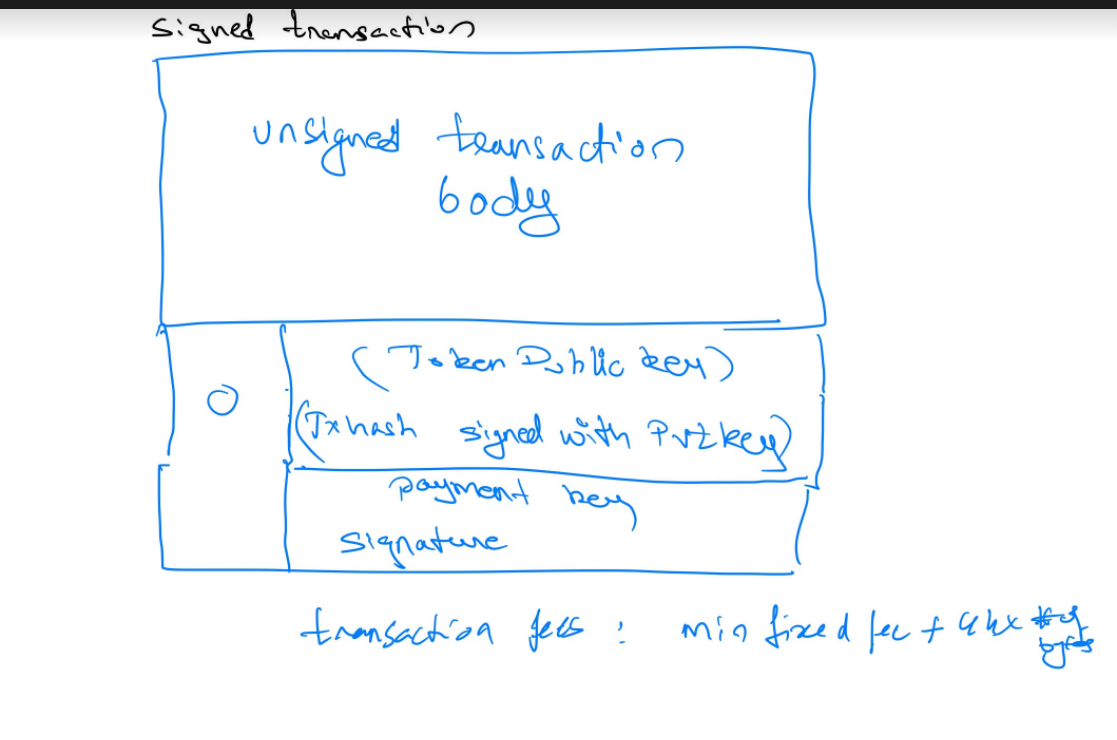 Signed transaction
unsigned transaction
body
(Token Public key)
0
(Txhash signed with Pvtkey)
payment key
signature
transaction fees : min fixed fee + 44x # of
bytes